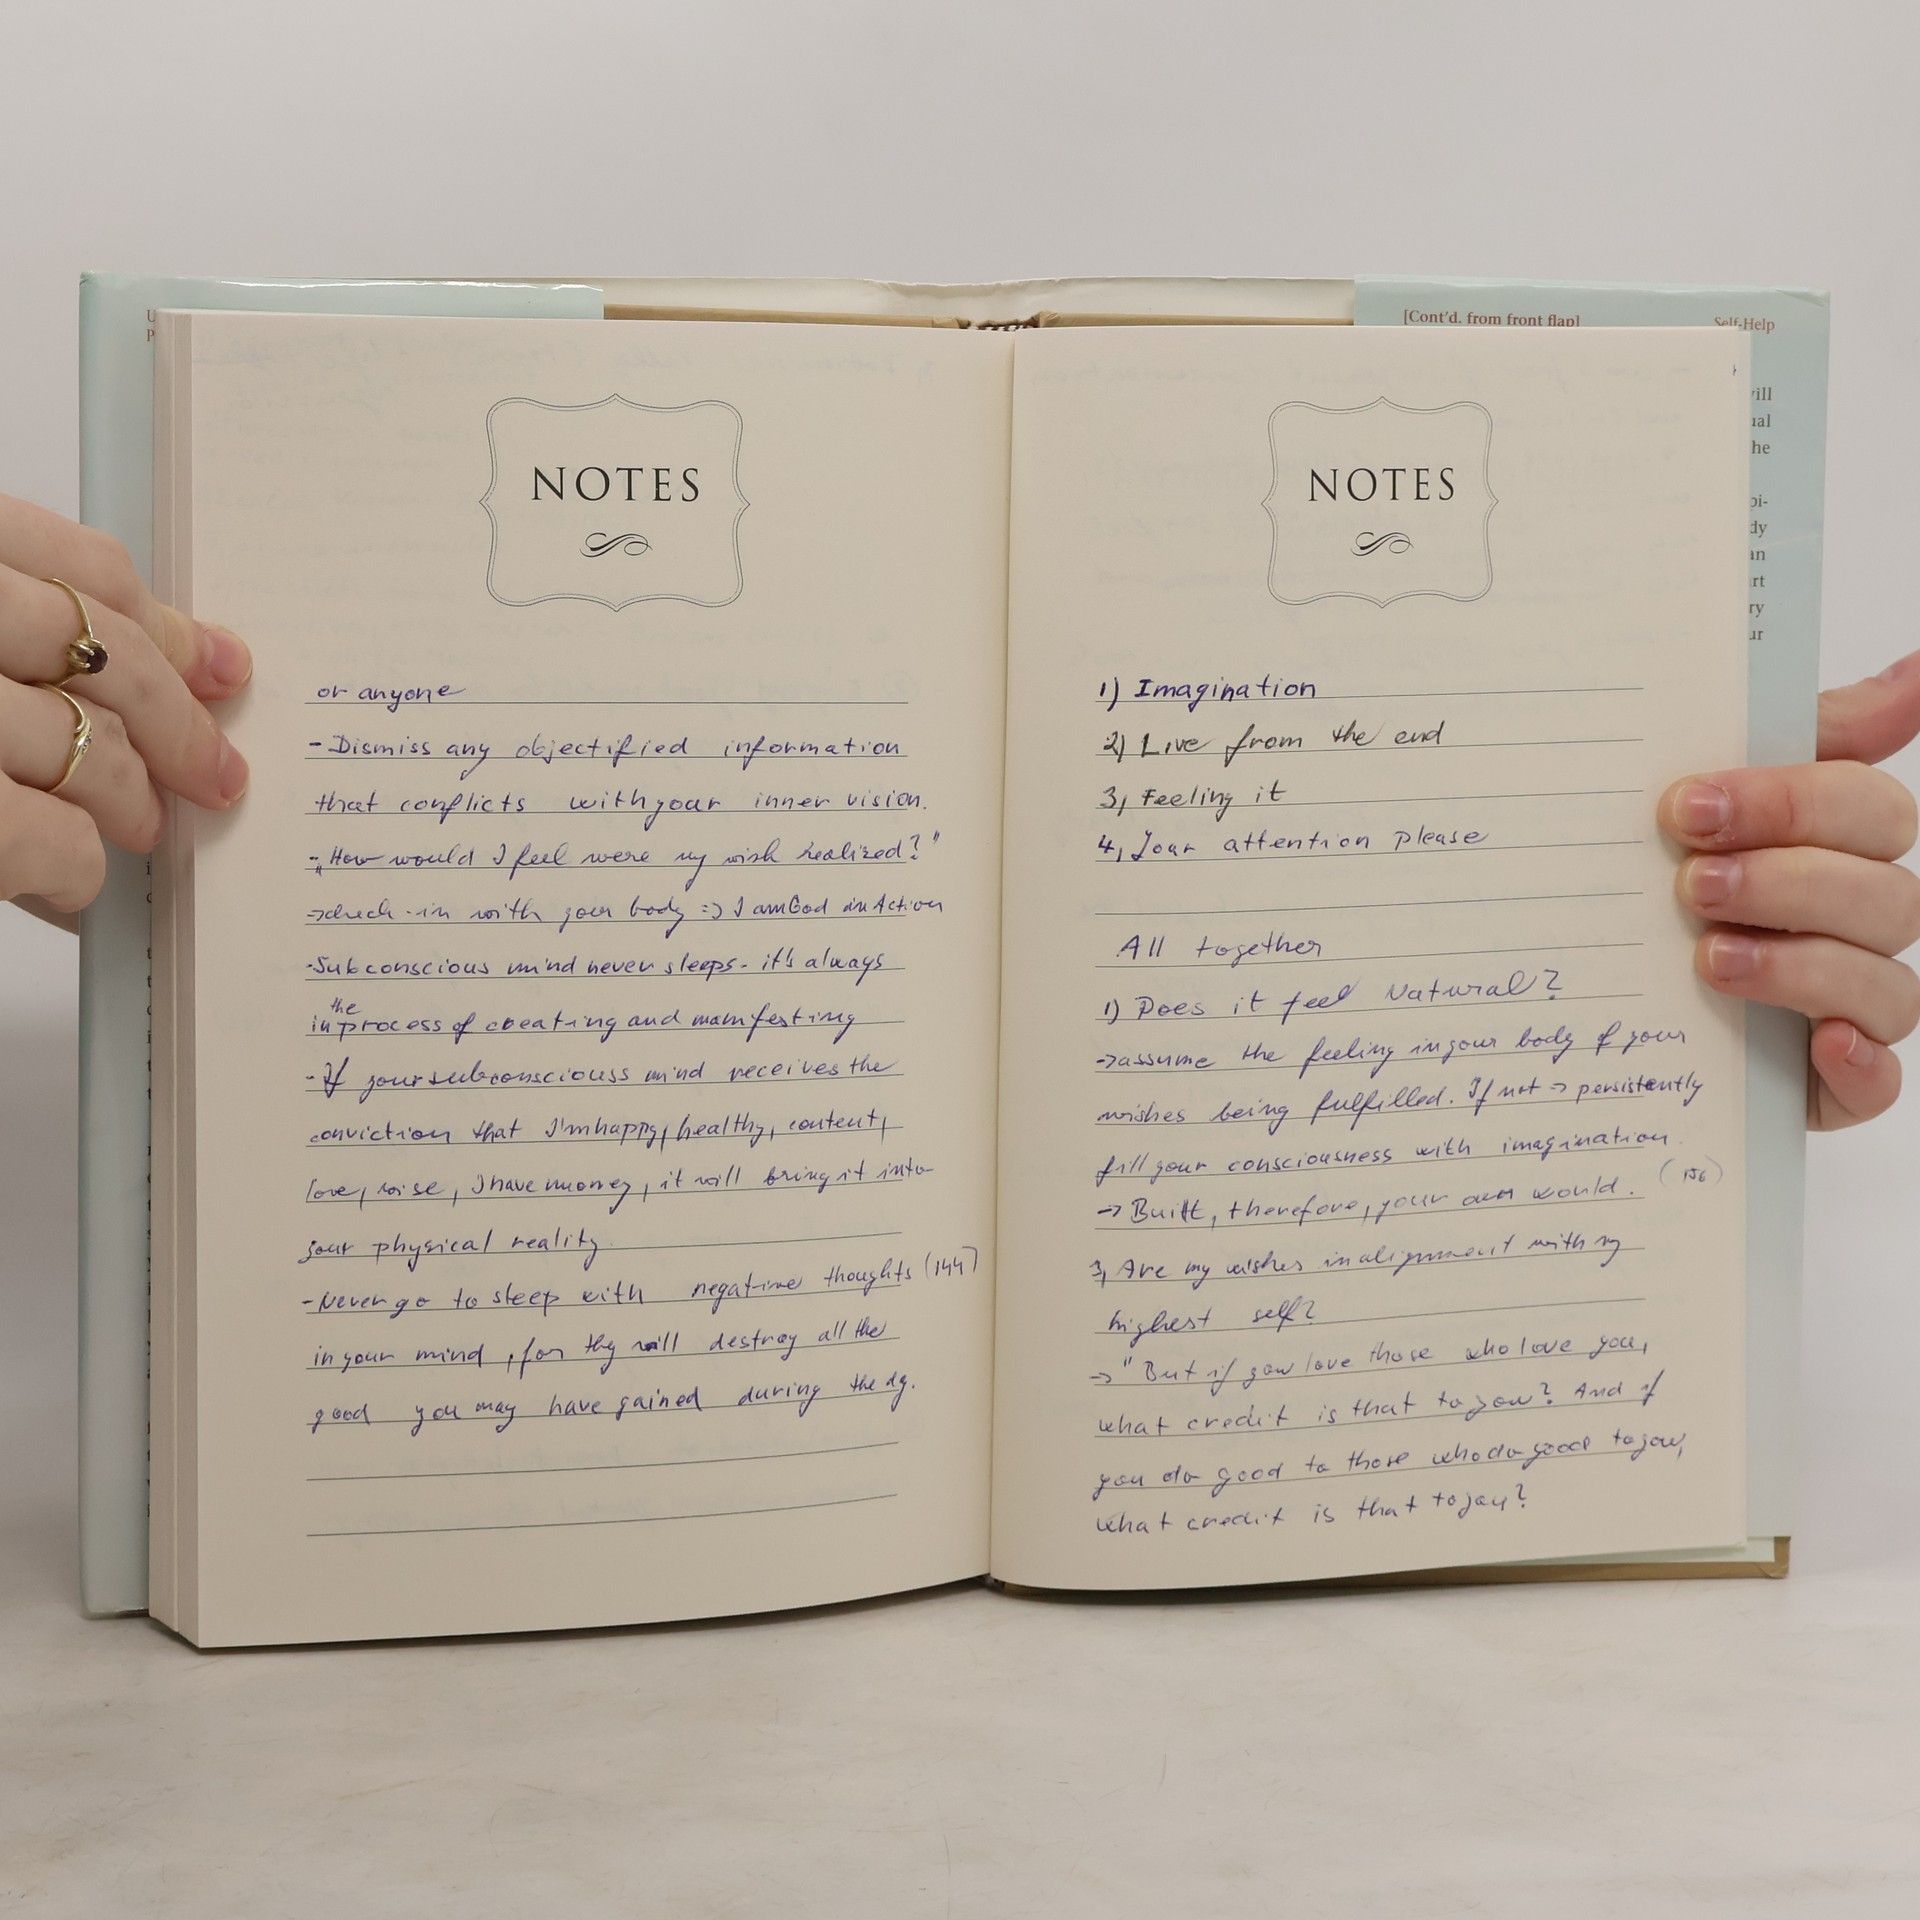 [Cont'd. from front flap]
Self-Help
NOTES
or anyone
- Dismiss any objectified information
that conflicts with your inner vision.
- "How would I feel were my wish realized?"
→ check-in with your body => I am God in Action
- Subconscious mind never sleeps - it's always
the
in process of creating and manifesting
- If your subconsciouss mind receives the
conviction that I'm happy, healthy, content,
love, wise, I have money, it will bring it into
your physical reality.
- Never go to sleep with negative thoughts (144)
in your mind, for thy will destroy all the
good you may have gained during the dy.
NOTES
1) Imagination
2) Live from the end
3, Feeling it
4, Your attention please
All together
1) Does it feel Natural?
→ assume the feeling in your body of your
wishes being fulfilled. If not → persistently
fill your consciousness with imagination.
(156)
→ Built, therefore, your own would.
3, Are my wishes in alignment with my
highest self?
→ "But if you love those who love you,
what credit is that to you? And if
you do good to those who do good to you,
what credit is that to you?